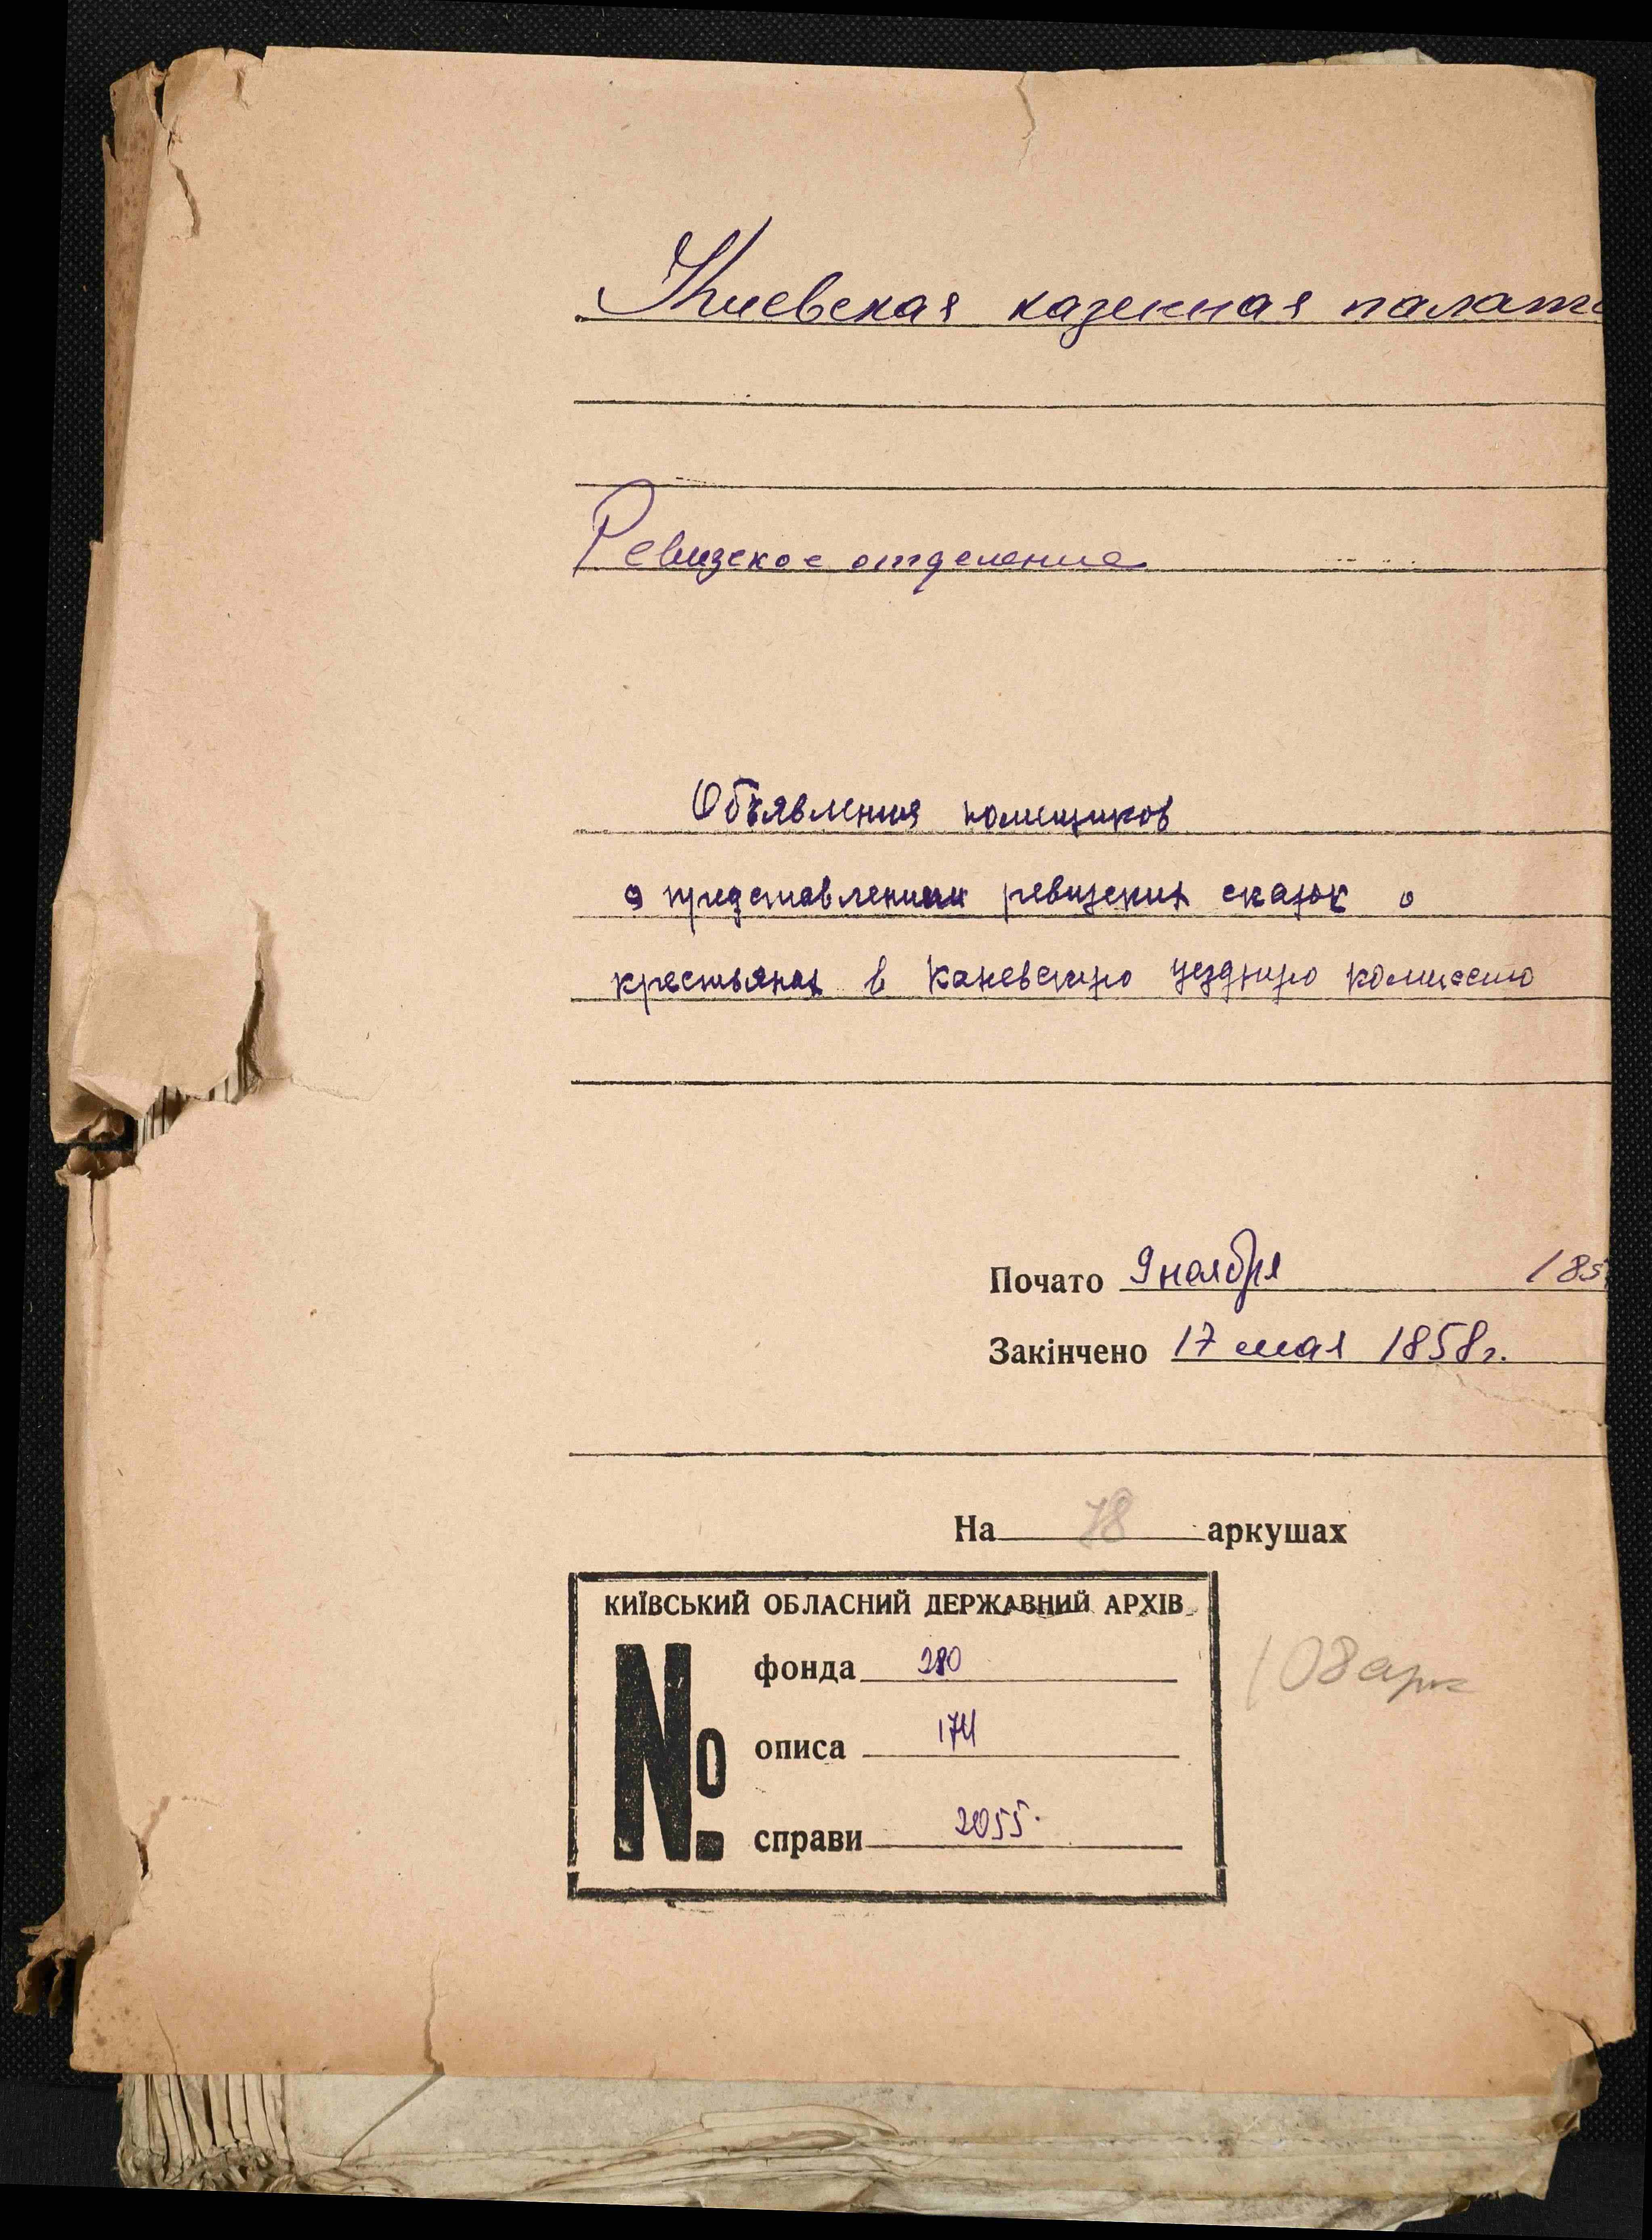 Киевская казенная палат
Ревизское отделение
Объявления помещиков
о представлении ревизских сказок о
крестьянах в Каневскую уездную комиссию
Почато 9 ноября 185
Закінчено 17 мая 1858 г.
На 78 аркушах
КИЇВСЬКИЙ ОБЛАСНИЙ ДЕРЖАВНИЙ АРХІВ
№
фонда 280
описа 174
справи 2055.
108 арк